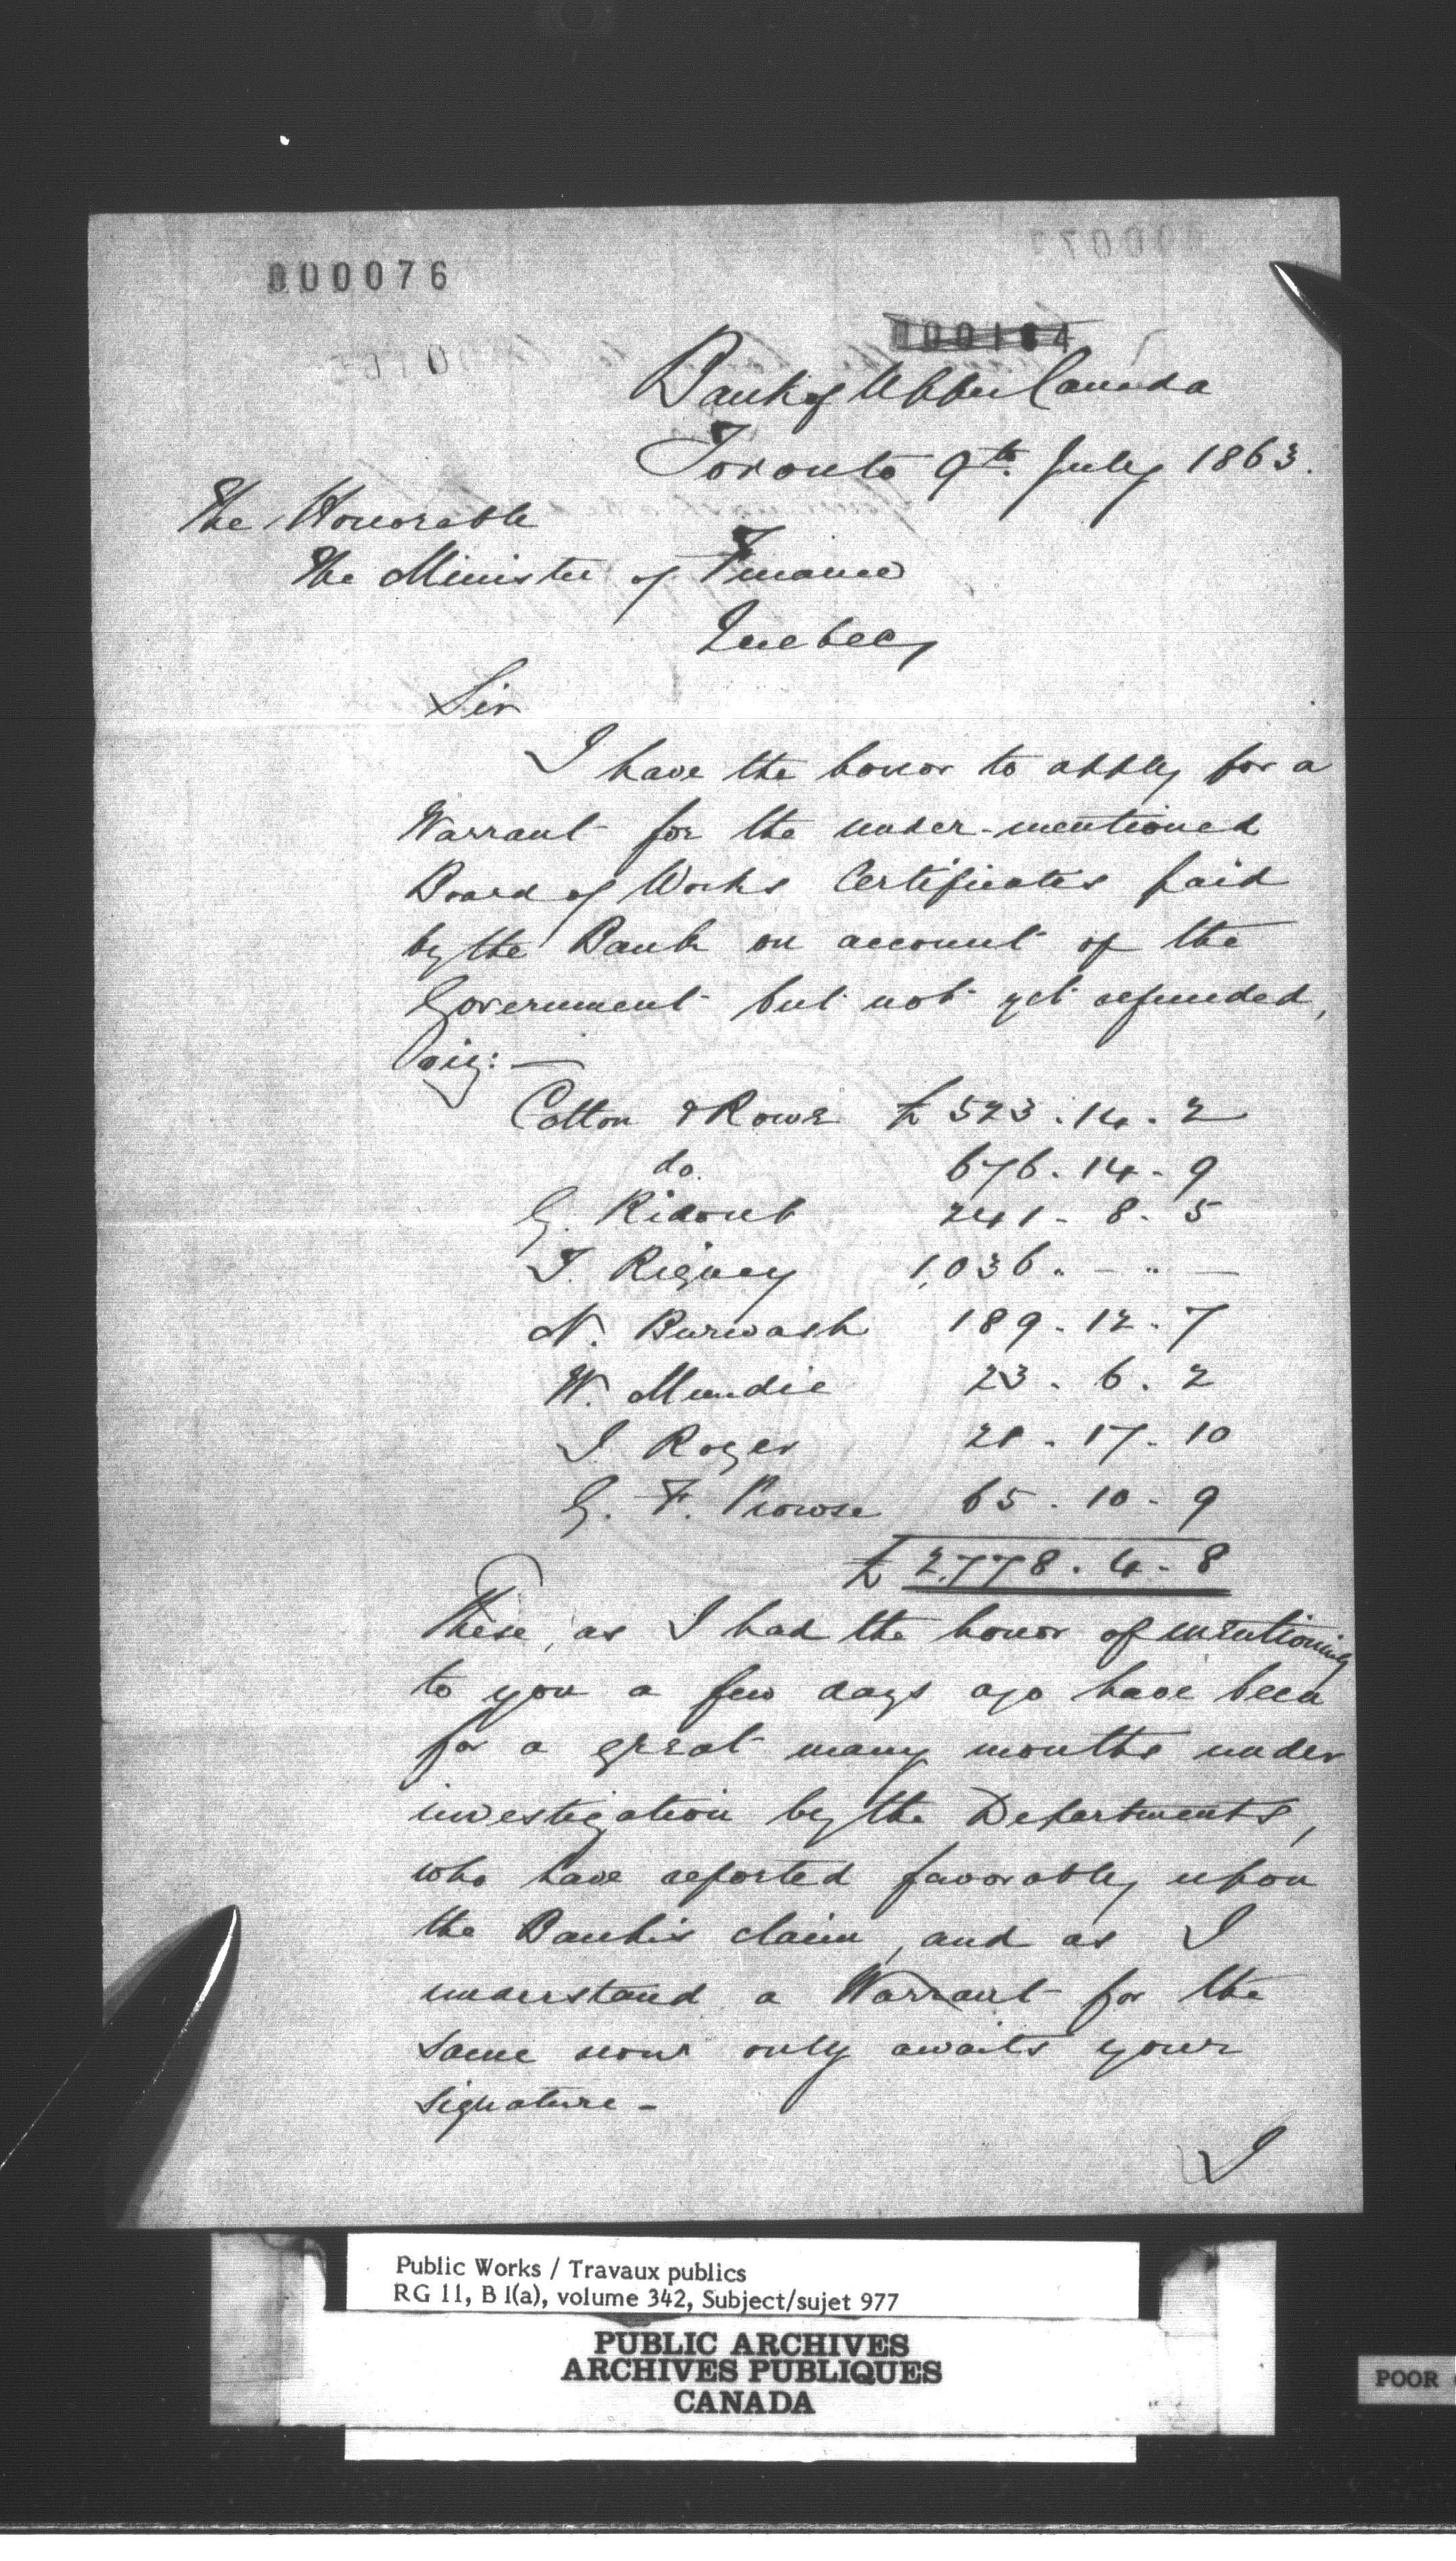 000076
000184
Bank of Upper Canada
Toronto 9th July 1863.
The Honorable
The Minister of Finance
Quebec,
Sir
I have the honor to apply for a
Warrant for the under-mentioned
Board of Works Certificates paid
by the Bank on account of the
Government but not yet refunded,
viz: —
Cotton & Rowe £ 523 . 14 . 2
do. 676 . 14 - 9
G. Ridout 241 - 8 - 5
T. Rigney 1,036 " — " —
N. Burwash 189 - 12 - 7
W. Mundie 23 . 6 . 2
J Roger 21 - 17 - 10
G. F. Prowse 65 - 10 - 9
£ 2,778 . 4 - 8
These, as I had the honor of mentioning
to you a few days ago have been
for a great many months under
investigation by the Departments,
who have reported favorably upon
the Bank's claim, and as I
understand a Warrant for the
same now only awaits your
signature -
I
Public Works / Travaux publics
RG 11, B 1(a), volume 342, Subject/sujet 977
PUBLIC ARCHIVES
ARCHIVES PUBLIQUES
CANADA
POOR